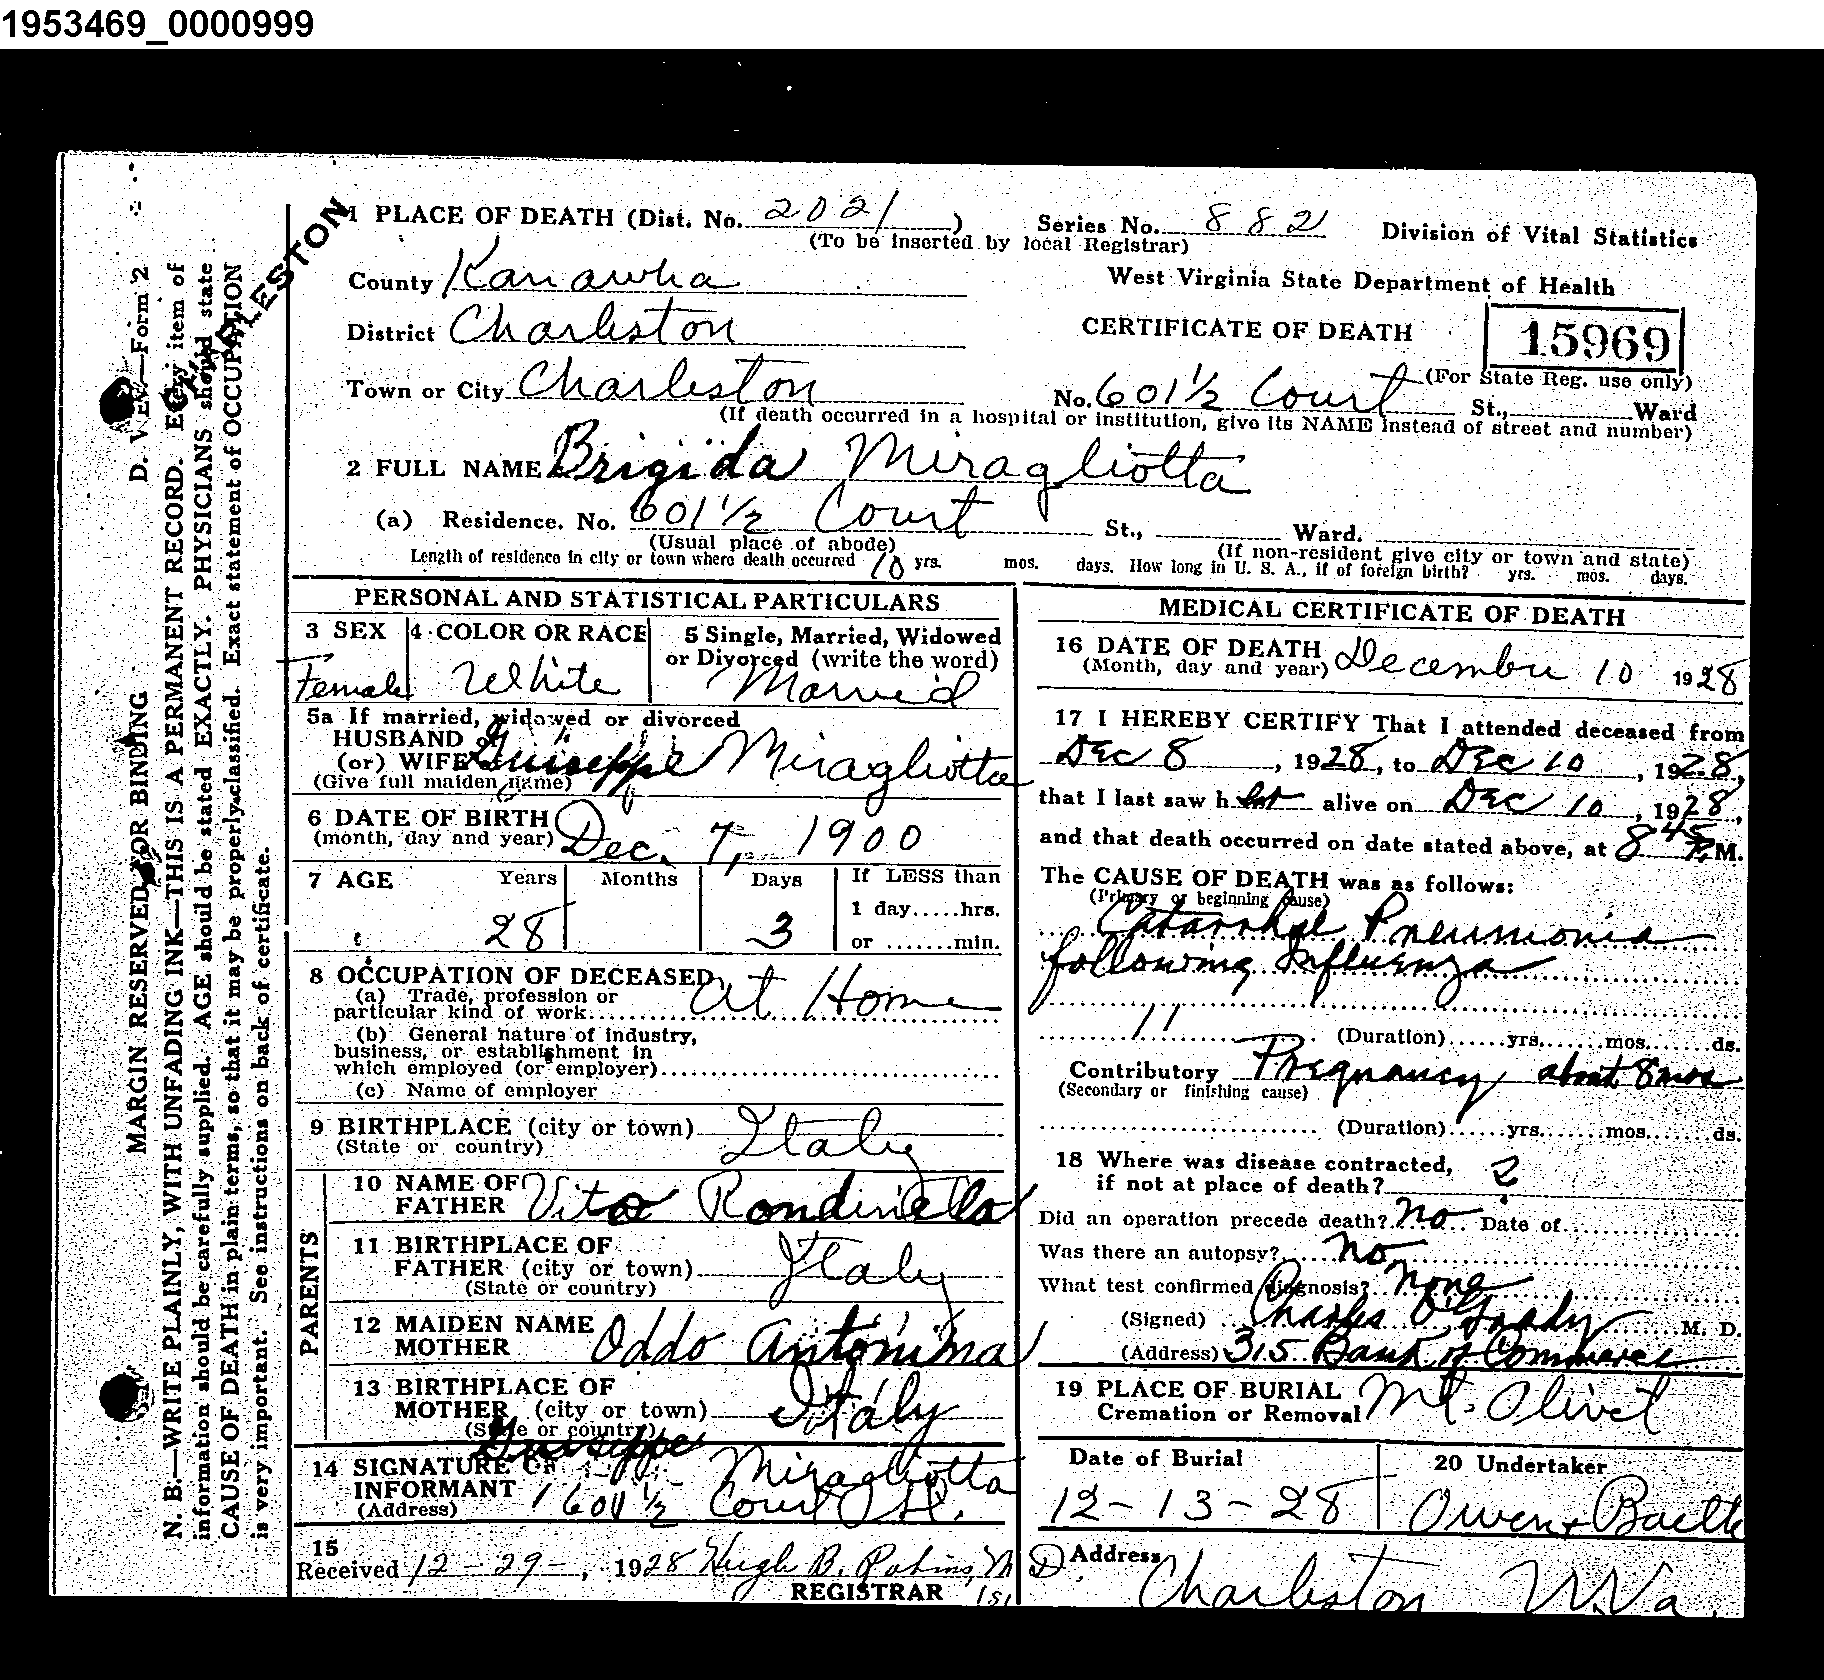 1953469_0000999
CHARLESTON
1 PLACE OF DEATH (Dist. No. 2021)
(To be inserted by local Registrar)
Series No. 882
Division of Vital Statistics
County Kanawha
West Virginia State Department of Health
District Charleston
CERTIFICATE OF DEATH
15969
(For State Reg. use only)
Town or City Charleston
No. 601½ Court St., Ward
(If death occurred in a hospital or institution, give its NAME instead of street and number)
2 FULL NAME Brigida Miragliotta
(a) Residence. No. 601½ Court St., Ward.
(Usual place of abode)
(If non-resident give city or town and state)
Length of residence in city or town where death occurred 10 yrs. mos. days. How long in U. S. A., if of foreign birth? yrs. mos. days.
PERSONAL AND STATISTICAL PARTICULARS
3 SEX
Female
4 COLOR OR RACE
White
5 Single, Married, Widowed
or Divorced (write the word)
Married
5a If married, widowed or divorced
HUSBAND
(or) WIFE Guiseppe Miragliotta
(Give full maiden name)
6 DATE OF BIRTH
(month, day and year) Dec. 7, 1900
7 AGE Years Months Days If LESS than
1 day.....hrs.
28 3 or .......min.
8 OCCUPATION OF DECEASED
(a) Trade, profession or
particular kind of work At Home
(b) General nature of industry,
business, or establishment in
which employed (or employer)
(c) Name of employer
9 BIRTHPLACE (city or town)
(State or country) Italy
PARENTS
10 NAME OF
FATHER Vito Rondinella
11 BIRTHPLACE OF
FATHER (city or town)
(State or country) Italy
12 MAIDEN NAME
MOTHER Oddo Antonina
13 BIRTHPLACE OF
MOTHER (city or town)
(State or country) Italy
14 SIGNATURE OF
INFORMANT Guiseppe Miragliotta
(Address) 601½ Court St.
15
Received 12-29-, 1928 Hugh B. Robins, M D.
REGISTRAR
MEDICAL CERTIFICATE OF DEATH
16 DATE OF DEATH
(Month, day and year) December 10 1928
17 I HEREBY CERTIFY That I attended deceased from
Dec 8, 1928, to Dec 10, 1928,
that I last saw her alive on Dec 10, 1928,
and that death occurred on date stated above, at 8 45 P.M.
The CAUSE OF DEATH was as follows:
(Primary or beginning cause)
Catarrhal Pneumonia
following Influenza
11 (Duration)......yrs.......mos.......ds.
Contributory Pregnancy about 8 mos
(Secondary or finishing cause)
(Duration)......yrs.......mos.......ds.
18 Where was disease contracted,
if not at place of death? ?
Did an operation precede death? No Date of
Was there an autopsy? No
What test confirmed diagnosis? None
(Signed) Charles O'Grady M. D.
(Address) 315 Bank of Commerce
19 PLACE OF BURIAL
Cremation or Removal Mt. Olivet
Date of Burial
12-13-28
20 Undertaker
Owen &
Address
Charleston W.Va.
D. V. EV.—Form 2
MARGIN RESERVED FOR BINDING
N. B.—WRITE PLAINLY, WITH UNFADING INK—THIS IS A PERMANENT RECORD. Every item of
information should be carefully supplied. AGE should be stated EXACTLY. PHYSICIANS should state
CAUSE OF DEATH in plain terms, so that it may be properly classified. Exact statement of OCCUPATION
is very important. See instructions on back of certificate.